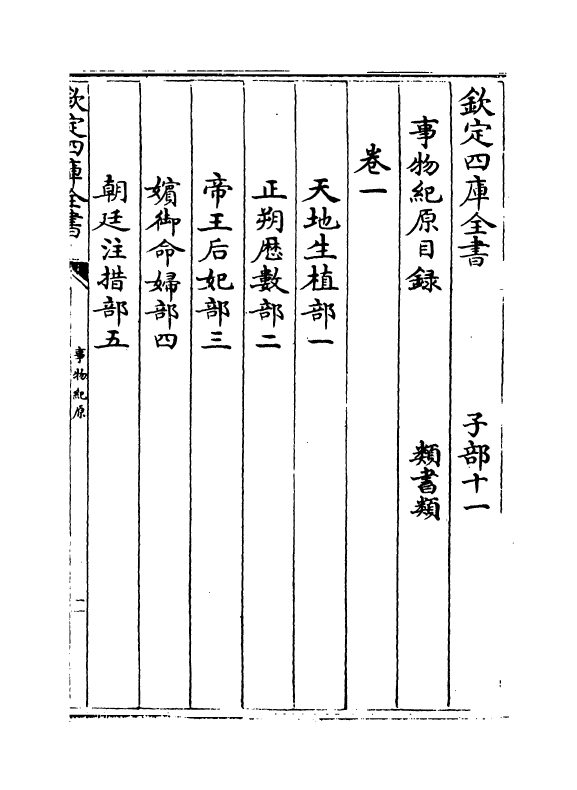 欽定四庫全書　子部十一
事物紀原目錄　類書類
卷一
天地生植部一
正朔厯數部二
帝王后妃部三
嬪御命婦部四
朝廷注措部五
欽定四庫全書　事物紀原